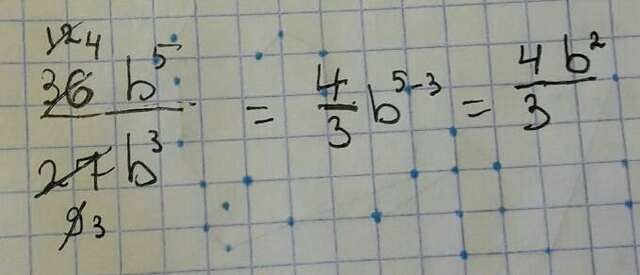 12 4
36 b⁵ / 27 b³ = 4/3 b⁵⁻³ = 4 b² / 3
9 3